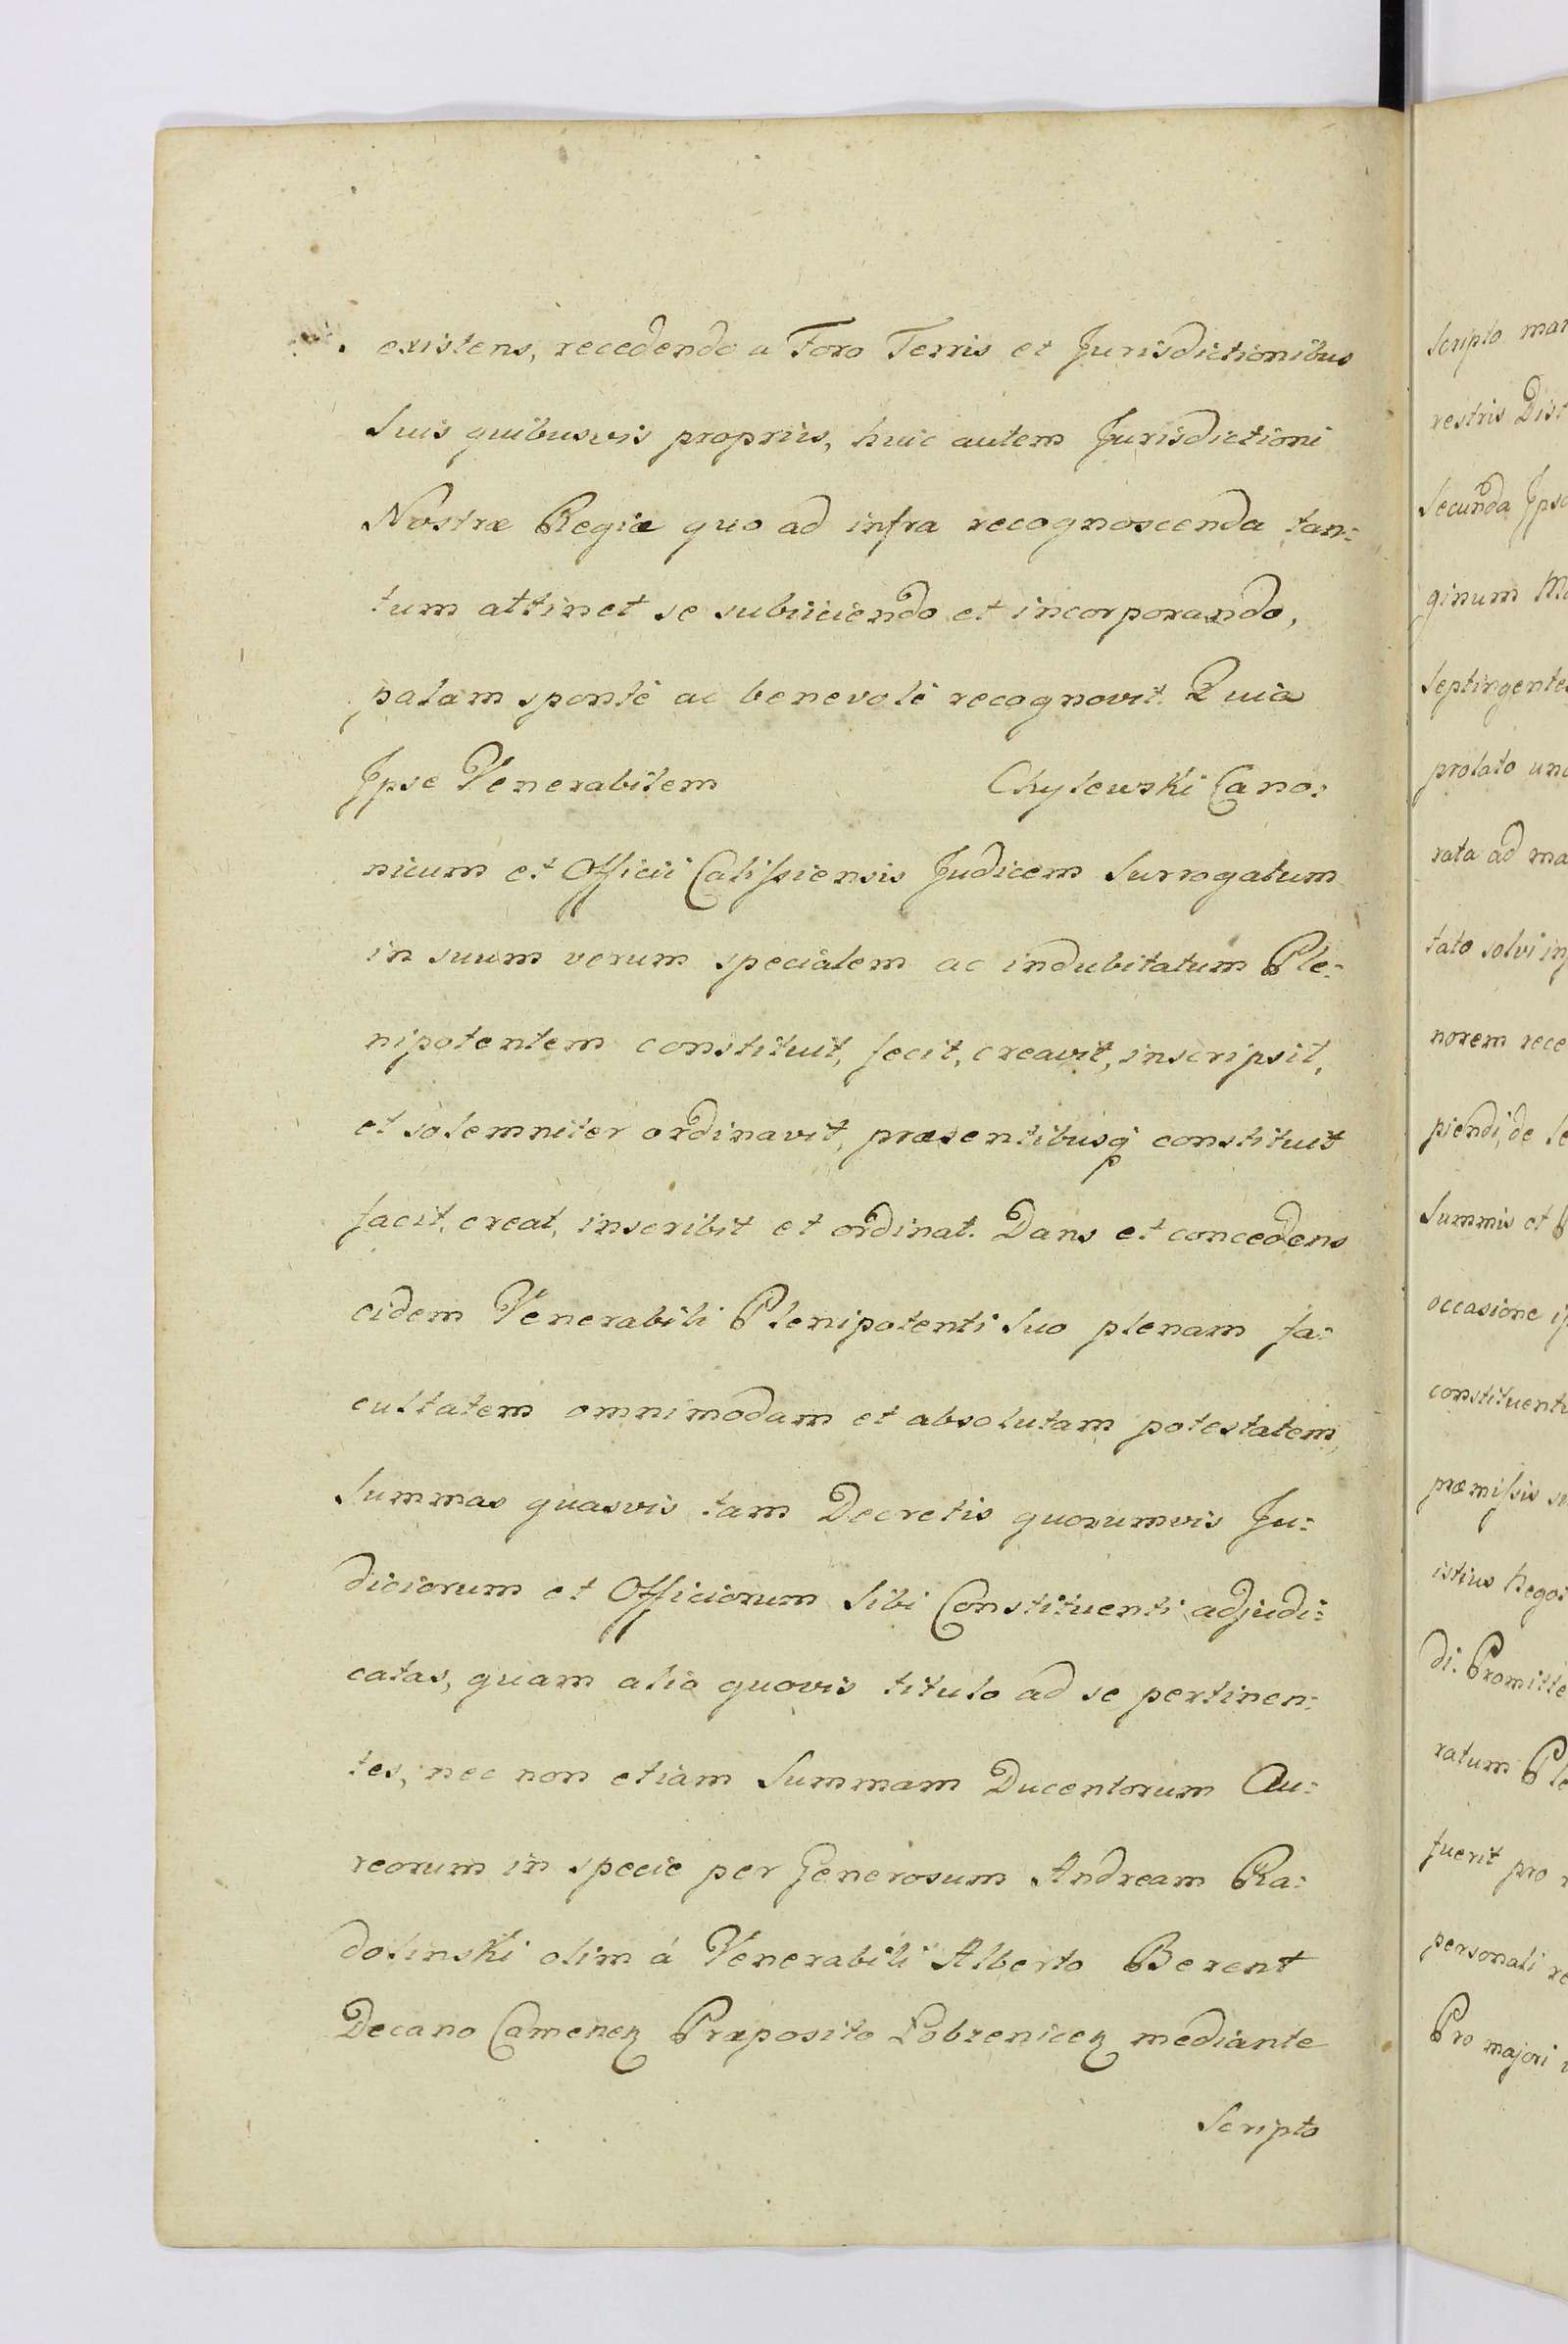 existens, recedendo a Foro Terris et Jurisdictionibus
Suis quibusvis propriis, huic autem Jurisdictioni
Nostræ Regiæ quo ad infra recognoscenda tan:
tum attinet se subiiciendo et incorporando,
palam sponté ac benevolé recognovit. Quia
Jpse Venerabilem Chylewski Cano:
nicum et Officii Calissiensis Judicem Surrogatum
in suum verum specialem ac indubitatum Ple:
nipotentem constituit, fecit, creavit, inscripsit,
et solemniter ordinavit, præsentibusq constituit
facit, creat, inscribit et ordinat. Dans et concedens
eidem Venerabili Plenipotenti Suo plenam fa:
cultatem omnimodam et absolutam potestatem,
Summas quasvis tam Decretis quorumvis Ju:
diciorum et Officiorum Sibi Constituenti adjudi:
catas, quam alio quovis titulo ad se pertinen:
tes, nec non etiam Summam Ducentorum Au:
reorum in specie per Generosum Andream Ra:
dolinski olim á Venerabili Alberto Berent
Decano Camenen Præposito Lobzenicen mediante
Scripto
Scripto man
restris Dist
Secunda Jpso
ginum Ma
Septingente
prolato una
rata ad ma
tato solvi in
norem rece
piendi, de
Summis et
occasione
constituenti
præmissis
istius Negot
di. Promitte
ratum Ple
fuerit pro
personali re
Pro majori